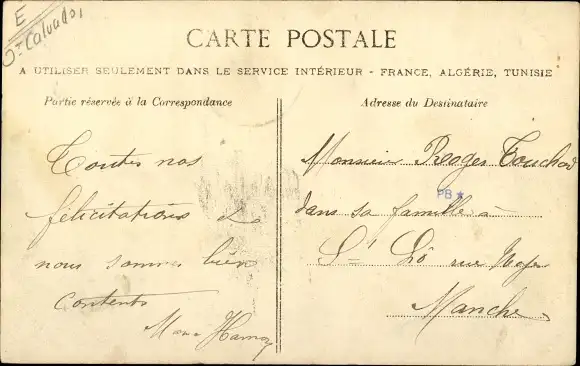 E
Ot Calvados
CARTE POSTALE
A UTILISER SEULEMENT DANS LE SERVICE INTÉRIEUR - FRANCE, ALGÉRIE, TUNISIE
Partie réservée à la Correspondance
Toutes nos
félicitations
nous sommes bien
contents
Adresse du Destinataire
Monsieur Roger Touchard
PB ★
dans sa famille à
St Lô rue
Manche